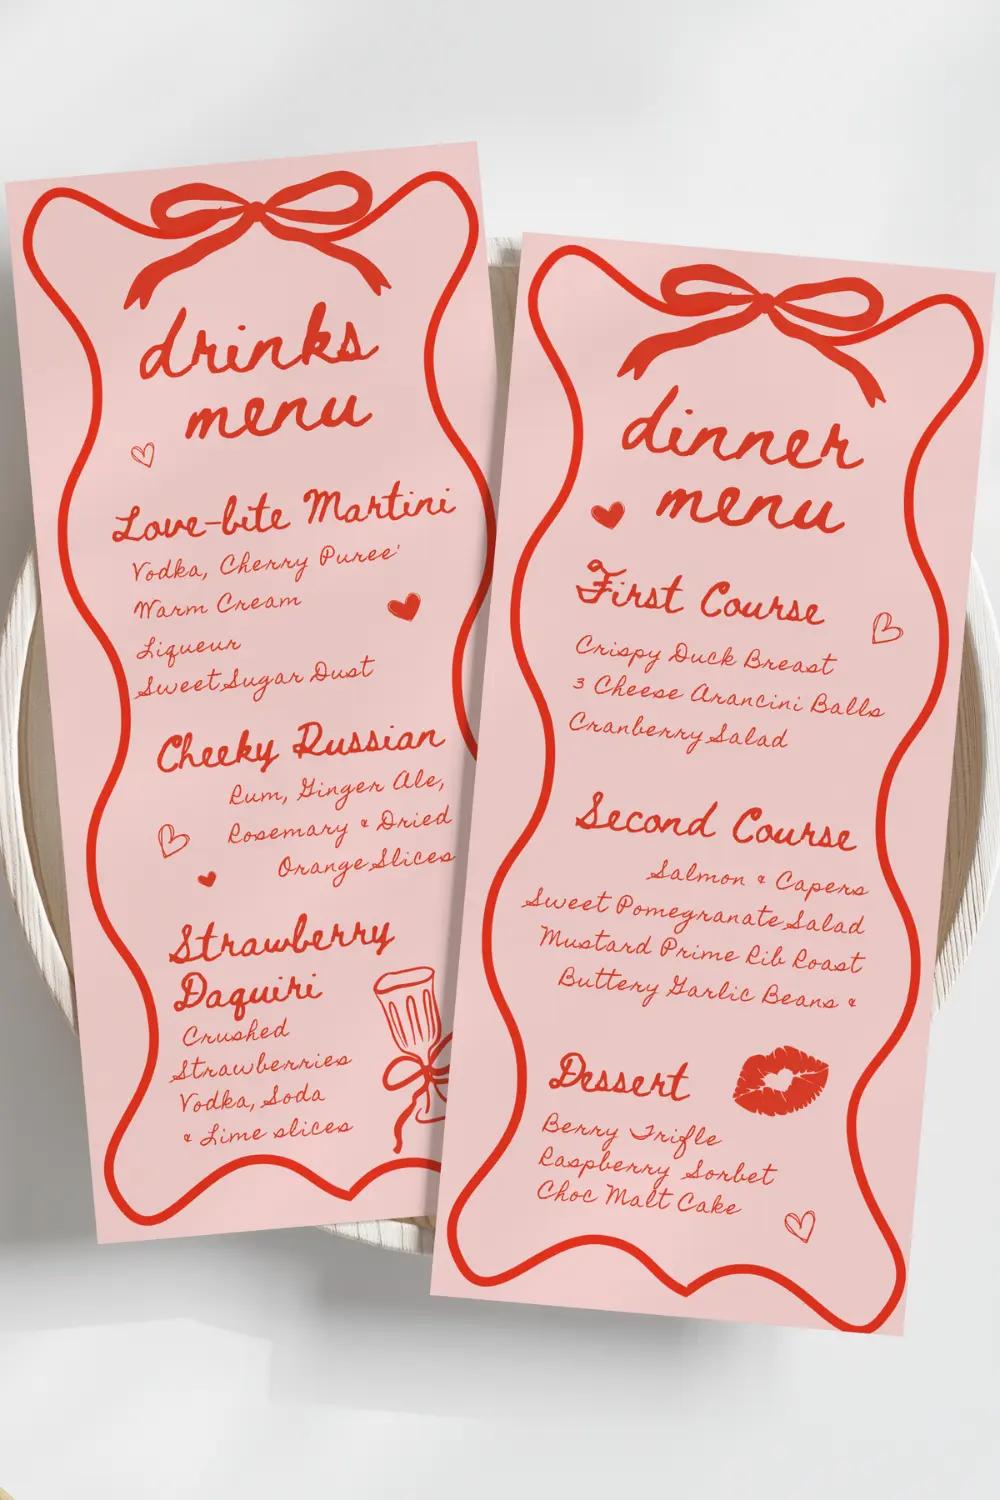 drinks
menu
Love-bite Martini
Vodka, Cherry Puree'
Warm Cream
Liqueur
Sweet Sugar Dust
Cheeky Russian
Rum, Ginger Ale,
Rosemary & Dried
Orange Slices
Strawberry
Daquiri
Crushed
Strawberries
Vodka, Soda
& Lime slices
dinner
menu
First Course
Crispy Duck Breast
3 Cheese Arancini Balls
Cranberry Salad
Second Course
Salmon & Capers
Sweet Pomegranate Salad
Mustard Prime Rib Roast
Buttery Garlic Beans &
Dessert
Berry Trifle
Raspberry Sorbet
Choc Malt Cake